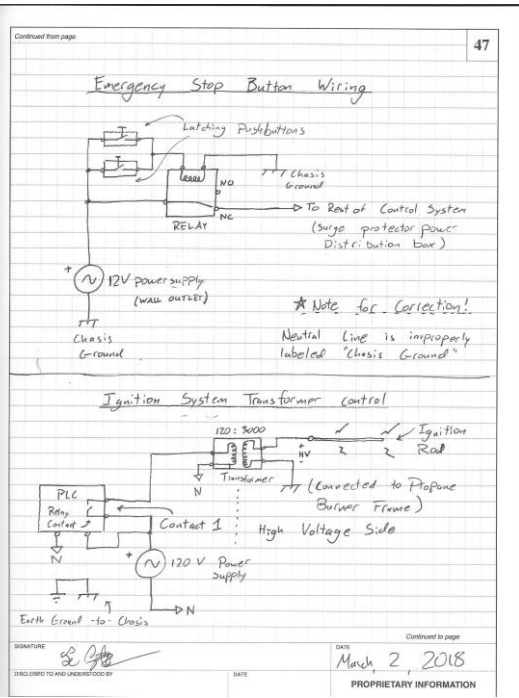 Continued from page
47
Emergency Stop Button Wiring
Latching Pushbuttons
Chasis
Ground
NO
NC
RELAY
To Rest of Control System
(Surge protector power
Distribution box)
+
12V power supply
(WALL OUTLET)
Chasis
Ground
★ Note for Correction!
Neutral Line is improperly
labeled "Chasis Ground"
Ignition System Transformer control
120:3000
Ignition
Rod
+
HV
-
N
Transformer
(Connected to Propane
Burner Frame)
PLC
Relay
Contact
Contact 1
High Voltage Side
N
+
120 V Power
Supply
N
Earth Ground -to- Chasis
Continued to page
SIGNATURE
DATE
March, 2, 2018
DISCLOSED TO AND UNDERSTOOD BY
DATE
PROPRIETARY INFORMATION